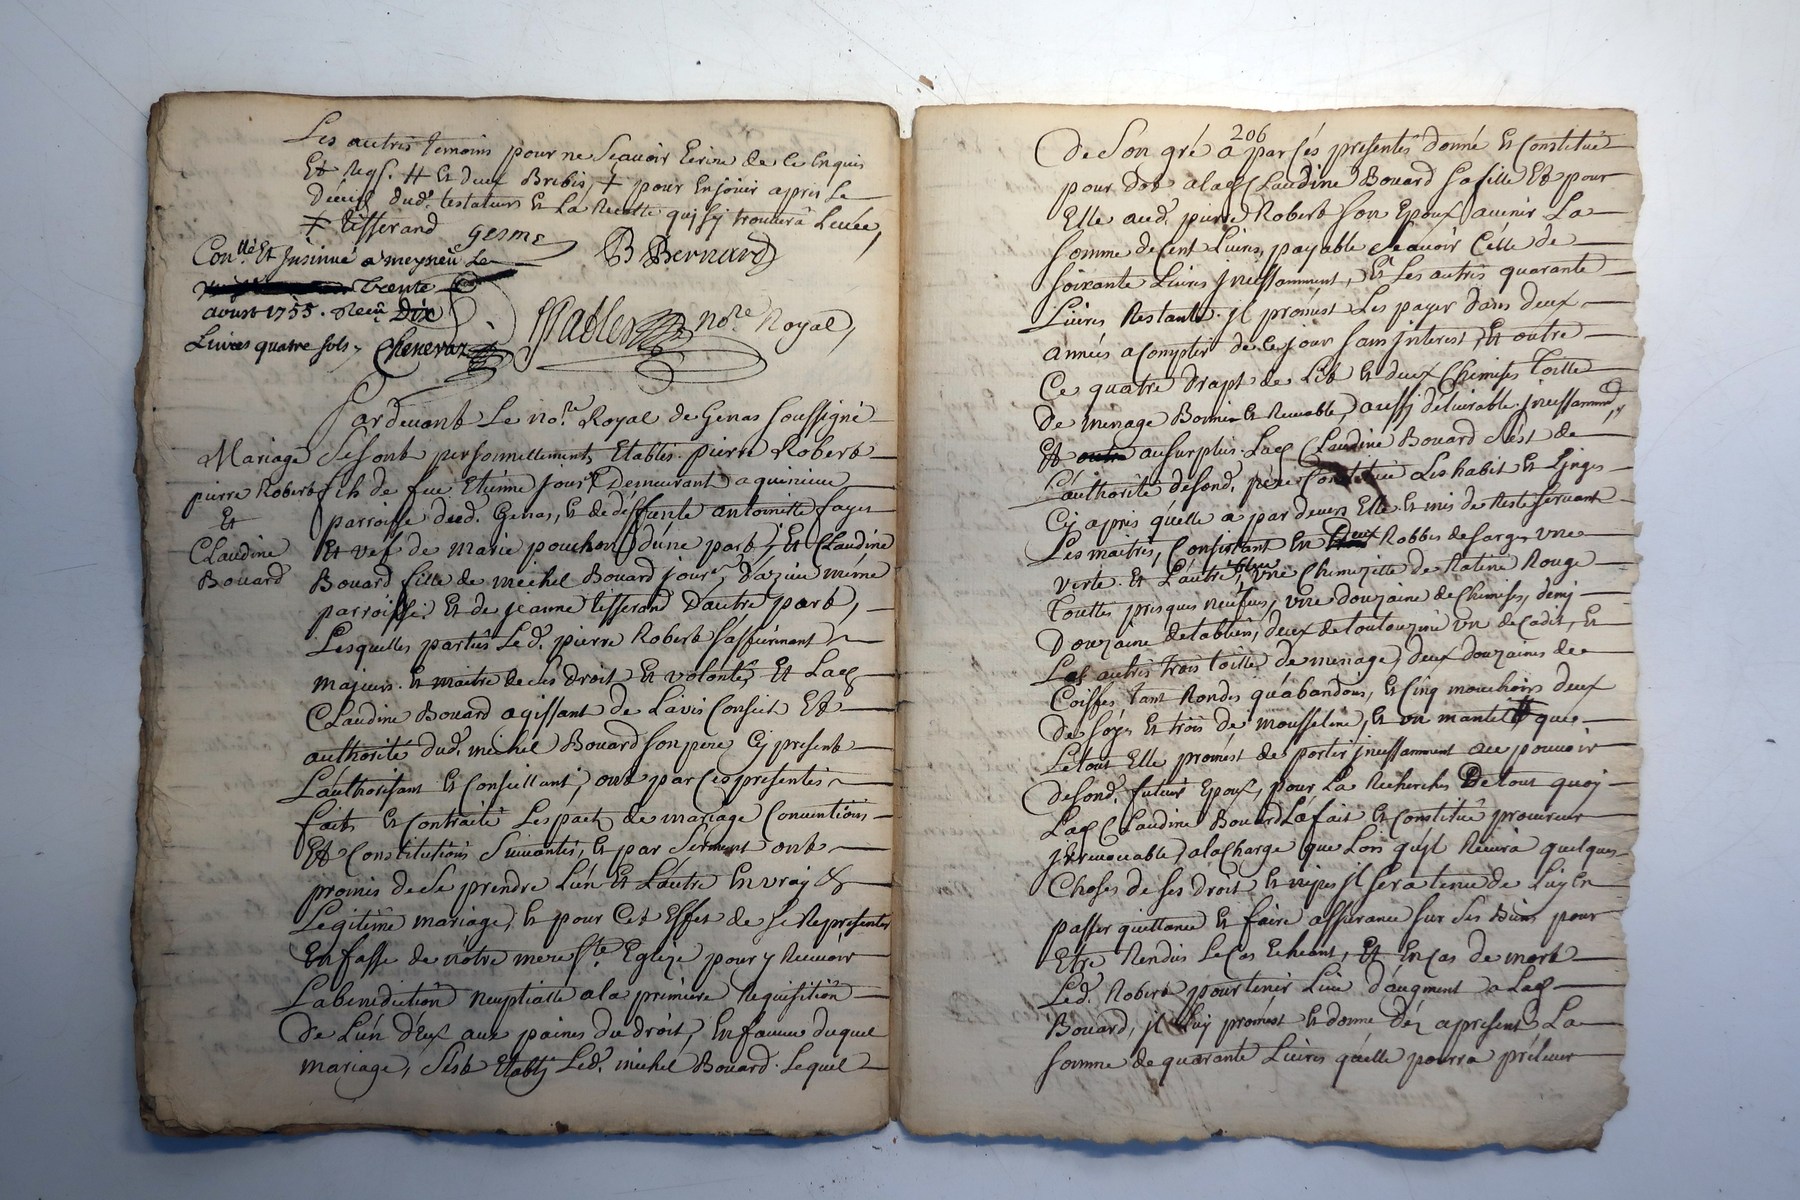 Les autres temoins pour ne sçavoir Ecrire de ce Enquis
Et Reqs. # Et deux Brebis, + pour En jouir apres Le
Décès dud. testateurs Et La Recolte qui sy trouvera Levée,
+ tisserand germe B Bernard
Con.llé Et Insinué a meyzieu Le
trente
aoust 1755. Recu Dix
Livres quatre sols, Chenevaz
no.re Royal,
Pardevant Le no.re Royal de Genas soussigné
Mariage
pierre Robert
Et
Claudine
Bouard
Se sont personnellement Etablis. pierre Robert
fils de feu Etienne jour.r Demeurant a quinieu
parroisse dud. Genas, & de deffunte antoinette fayet
Et vef de marie pouchon d'une part, Et Claudine
Bouard fille de michel Bouard jour.r, d'azieu même
parroisse. Et de jeanne tisserand D'autre part,
Lesquelles parties Led. pierre Robert s'affirmant
majeurs. Et maitre de ses droit Et volontés Et Lad.
Claudine Bouard agissant de L'avis Conseil Et
authorité dud. michel Bouard son pere Cy present
L'authorisant Et Conseillant, ont par Ces presentes
faits Et Contraité Les pact de mariage Conventions
Et Constitutions Suivantes, Et par Serment ont
promis de se prendre L'un Et L'autre En vray &
Legitime mariage, Et pour Cet Effet de se Representer
En fasse de nôtre mere S.te Eglize pour y Recevoir
La benediction neuptialle a la premiere Requisition
De L'un d'Eux aux paines du droit, En faveur duquel
mariage, s'est Etably Led. michel Bouard. Lequel
206
De Son gré a par Cés presentes donné Et Constitué
pour dot a lad. Claudine Bouard sa fille Et pour
Elle aud. pierre Robert son Epoux avenir La
somme de Cent Livres, payable sçavoir Celle de
soixante Livres jncessamment, Et Les autres quarante
Livres Restante. jl promest Les payer dans deux
années a Compter de Ce jour sans jnterest, Et outre
Ce quatre drapt de Lit Et deux Chemises toille
De menage Bonne Et Recevable, aussi délivrable jncessamment,
Et au surplus. Lad. Claudine Bouard s'est de
L'authorité de sond. pere Constitué Les habit Et Linges
Cy apres qu'elle a par devers Elle Et mis de Reste servant
Les maitres, Consistant En deux Robbes de sarge une
verte. Et L'autre bleue, une Chemizette de Ratine Rouge
touttes presques neufves, une douzaine de Chemises, demi
Douzaine de tablier, deux de toutouzine un de Cadis, Et
Les autres trois toille de menage, deux douzaines de
Coiffes, tant Rondes qu'abandons, Et Cinq mouchoirs deux
de soye Et trois de mousseline, Et un mantelet que
Le tout Elle promest de porter jncessamment au pouvoir
de sond. futeur Epoux, pour La Recherches De tout quoy
Lad. Claudine Bouard L'a fait Et Constitué procureur
jrrevocable, a la Charge que Lors qu'jl Recevra quelques
Choses de ses droit Et nipes jl sera tenu de Luy En
passer quittance Et faire assurance sur ses Biens pour
Etre Rendus Le Cas Echeant, Et En Cas de mort
Led. Robert pour tenir Lieu d'augment a Lad.
Bouard, jl Luy promest Et donne déz apresent La
somme de quarante Livres qu'elle pourra prélever